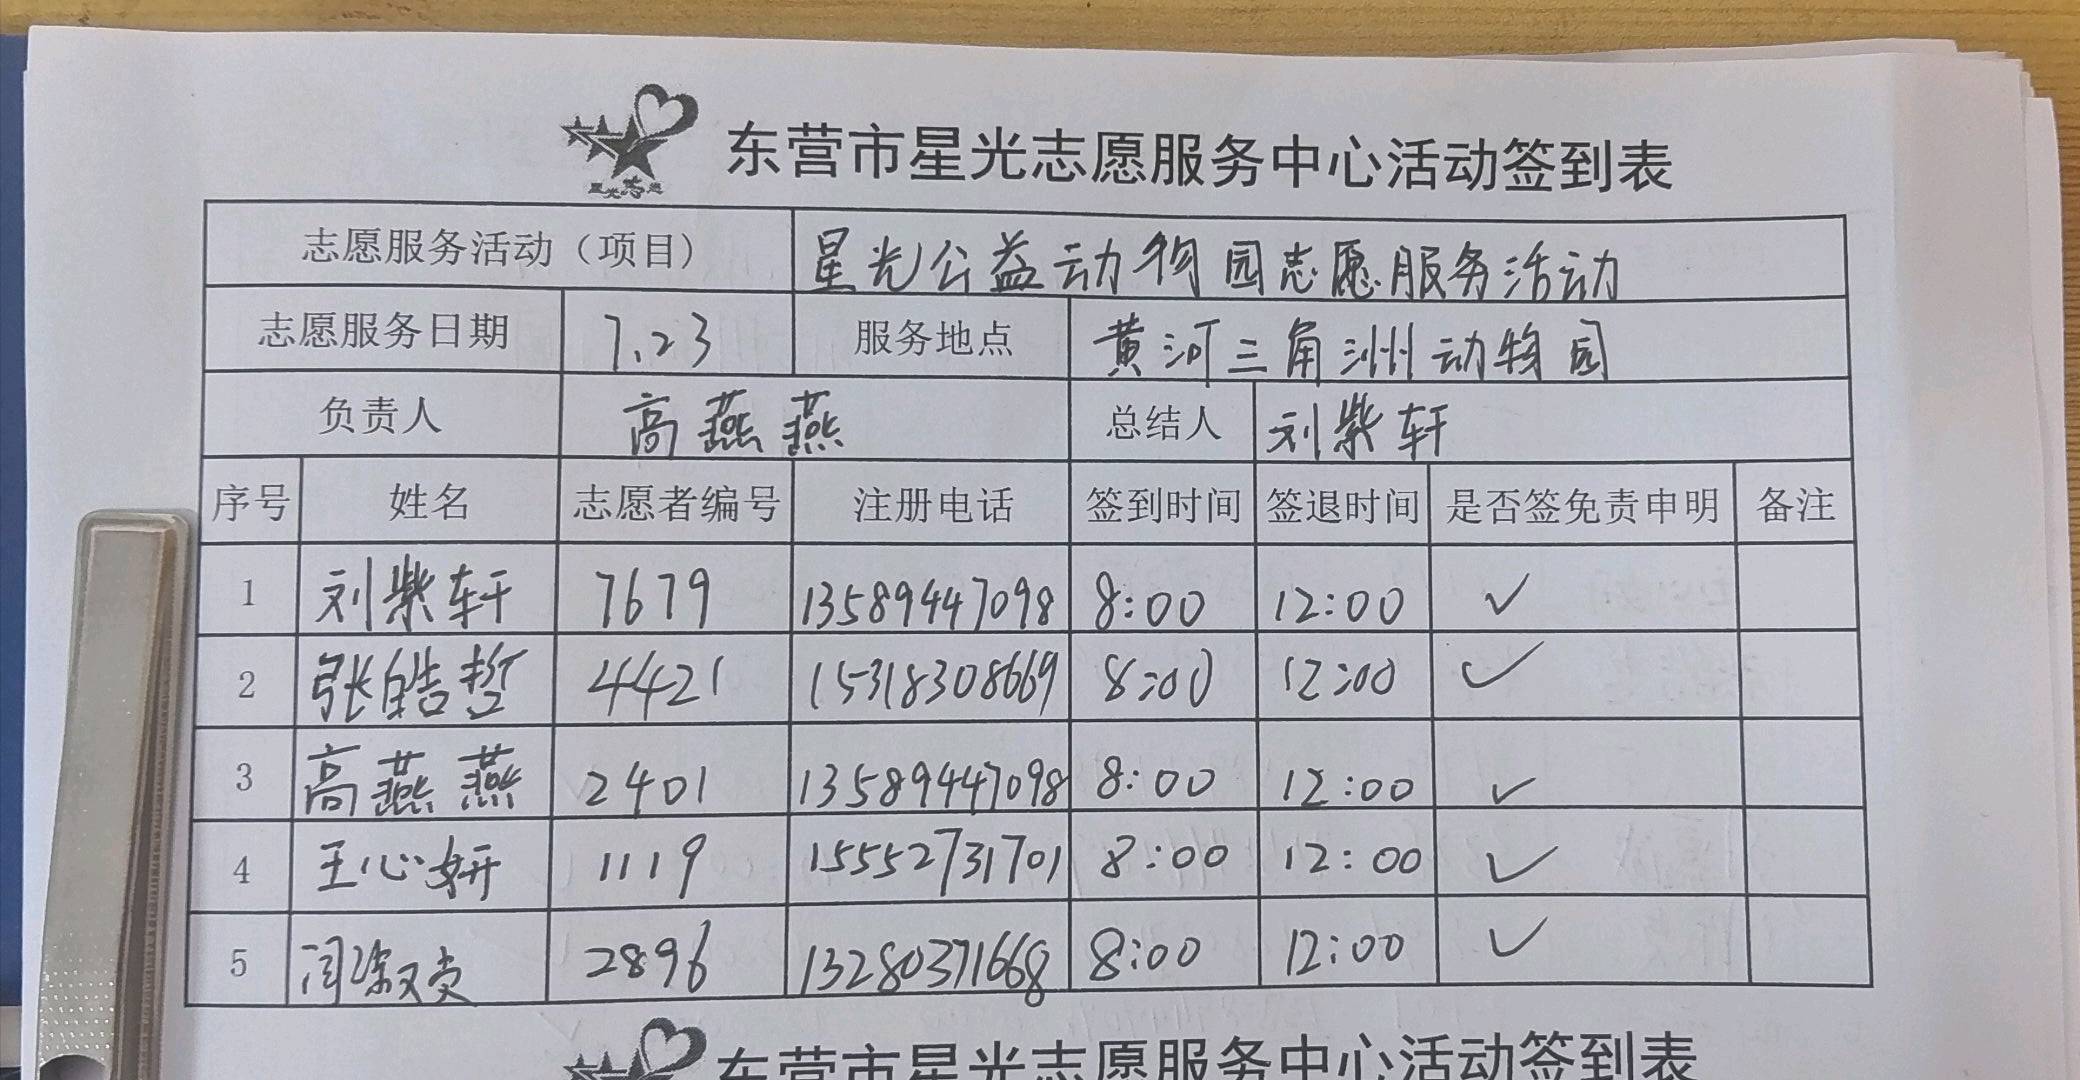 星光志愿
东营市星光志愿服务中心活动签到表
志愿服务活动（项目） 星光公益动物园志愿服务活动
志愿服务日期 7.23 服务地点 黄河三角洲动物园
负责人 高燕燕 总结人 刘紫轩
序号 姓名 志愿者编号 注册电话 签到时间 签退时间 是否签免责申明 备注
1 刘紫轩 7679 13589447098 8:00 12:00 ✓
2 张皓哲 4421 15318308669 8:00 12:00 ✓
3 高燕燕 2401 13589447098 8:00 12:00 ✓
4 王心妍 1119 15552731701 8:00 12:00 ✓
5 2896 13280371668 8:00 12:00 ✓
东营市星光志愿服务中心活动签到表